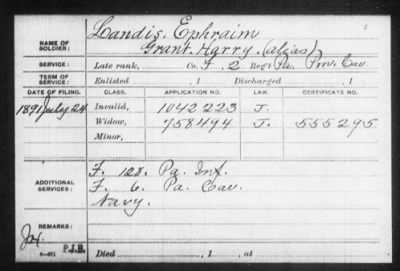 NAME OF SOLDIER: Landis, Ephraim
Grant, Harry, (alias)
SERVICE: Late rank, Co. F, 2 Reg't Pa. Prov. Cav.
TERM OF SERVICE: Enlisted , 1 Discharged , 1
DATE OF FILING. CLASS. APPLICATION NO. LAW. CERTIFICATE NO.
1891 July 24 Invalid, 1042223 J.
Widow, 758494 J. 555295
Minor,
ADDITIONAL SERVICES: F. 128. Pa. Inf.
F. 6. Pa. Cav.
Navy.
REMARKS:
P.I.B.
Died , 1 , at